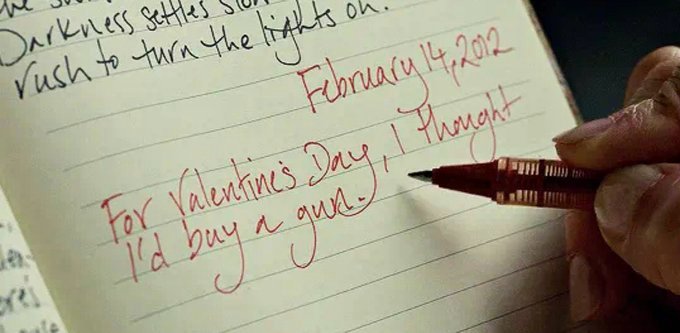 Darkness settles
rush to turn the lights on.
February 14, 2012
For Valentine's Day, I thought
I'd buy a gun.